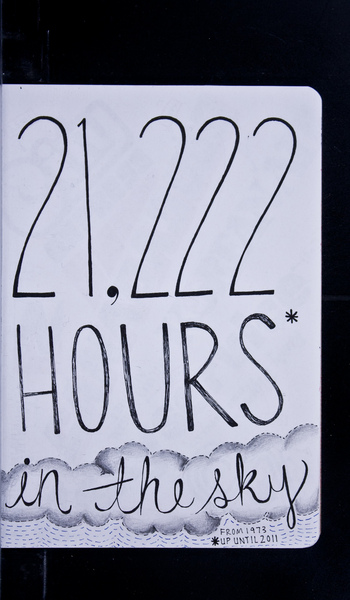 21,222
HOURS*
in the sky
FROM 1973
*UP UNTIL 2011